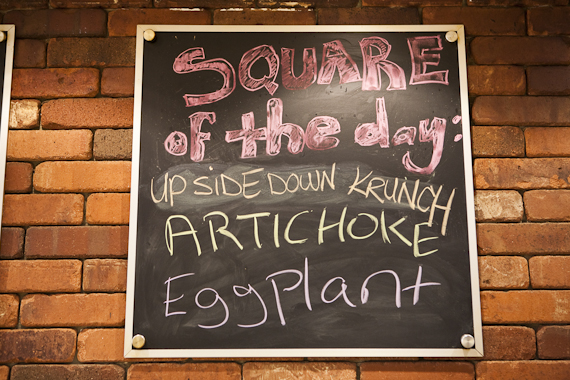 SQUARE
of the day:
UPSIDEDOWN KRUNCH
ARTICHOKE
Eggplant